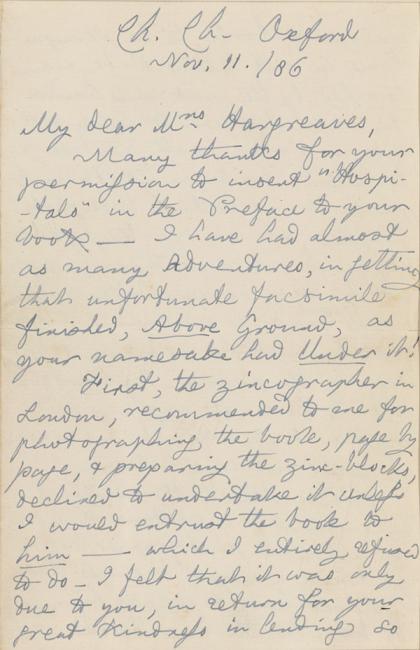 Ch. Ch. Oxford
Nov. 11. /86
My dear Mrs Hargreaves,
Many thanks for your
permission to insert "Hospi-
-tals" in the Preface to your
book — I have had almost
as many Adventures, in getting
that unfortunate facsimile
finished, Above Ground, as
your namesake had Under it!
First, the zincographer in
London, recommended to me for
photographing the book, page by
page, & preparing the zinc-blocks,
declined to undertake it unless
I would entrust the book to
him — which I entirely refused
to do — I felt that it was only
due to you, in return for your
great kindness in lending so